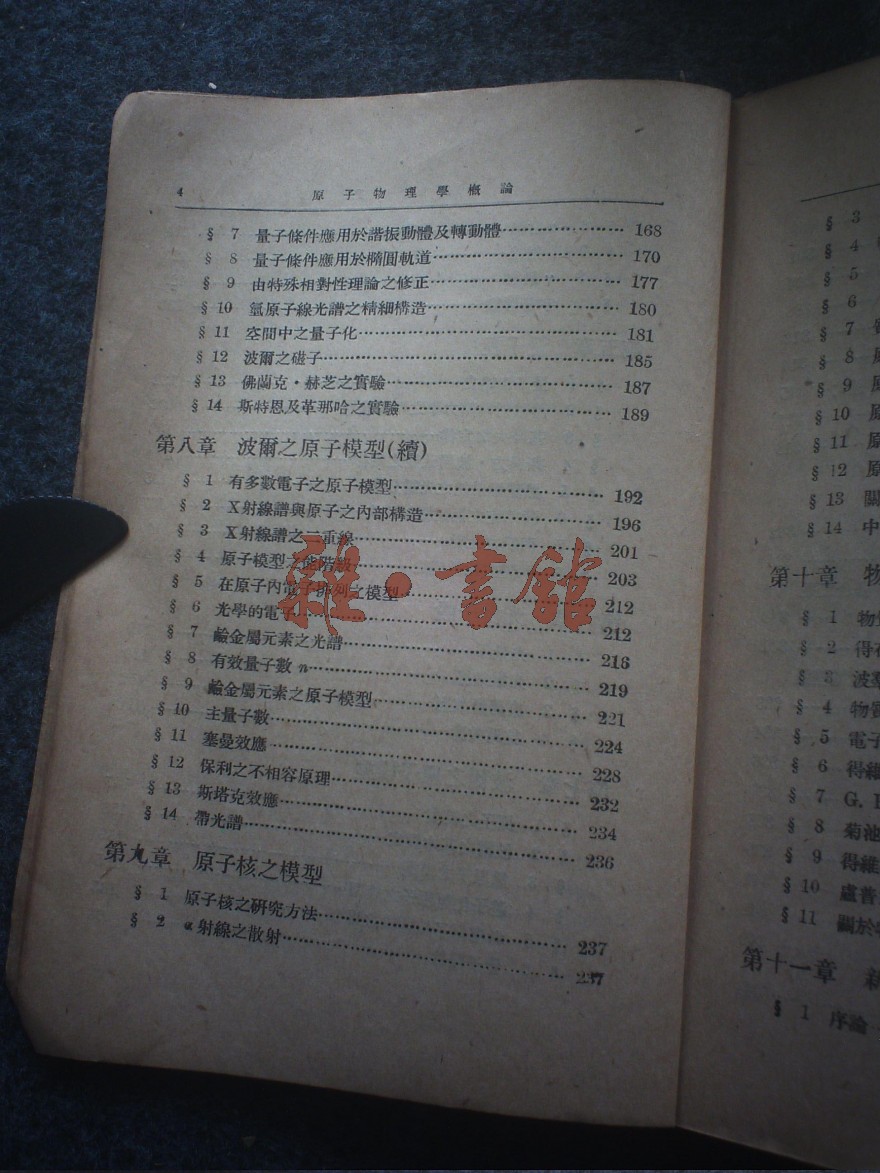 4 原子物理學概論
§ 7 量子條件應用於諧振動體及轉動體 168
§ 8 量子條件應用於橢圓軌道 170
§ 9 由特殊相對性理論之修正 177
§ 10 氫原子線光譜之精細構造 180
§ 11 空間中之量子化 181
§ 12 波爾之磁子 185
§ 13 佛蘭克·赫芝之實驗 187
§ 14 斯特恩及革那哈之實驗 189
第八章 波爾之原子模型(續)
§ 1 有多數電子之原子模型 192
§ 2 X射線譜與原子之內部構造 196
§ 3 X射線譜之二重線 201
§ 4 原子模型之能階級 203
§ 5 在原子內電子排列之模型 212
§ 6 光學的電子 212
§ 7 鹼金屬元素之光譜 216
§ 8 有效量子數 n 219
§ 9 鹼金屬元素之原子模型 221
§ 10 主量子數 224
§ 11 塞曼效應 228
§ 12 保利之不相容原理 232
§ 13 斯塔克效應 234
§ 14 帶光譜 236
第九章 原子核之模型
§ 1 原子核之研究方法 237
§ 2 α射線之散射 237
雜·書館
§ 3
§ 4
§ 5
§ 6
§ 7
§ 8 原
§ 9 原
§ 10 原
§ 11 原
§ 12 原
§ 13 關
§ 14 中
第十章 物
§ 1 物質
§ 2 得布
§ 3 波羣
§ 4 物質
§ 5 電子
§ 6 得維
§ 7 G.
§ 8 菊池
§ 9 得維
§ 10 盧普
§ 11 關於
第十一章 新
§ 1 序論